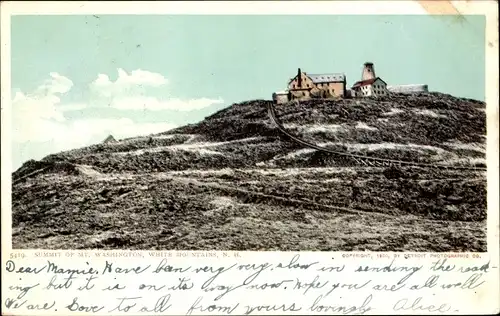 5419. SUMMIT OF MT. WASHINGTON, WHITE MOUNTAINS, N. H.
COPYRIGHT, 1900, BY DETROIT PHOTOGRAPHIC CO.
Dear Mamie, Have been very very slow in sending the read
ing but it is on its way now. Hope you are all well
We are. Love to all from yours lovingly Alice.